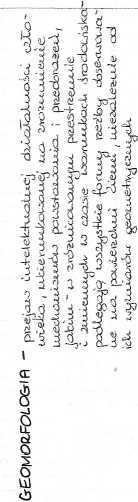 GEOMORFOLOGIA – przejaw intelektualnej działalności czło-
wieka, ukierunkowanej na zrozumienie
mechanizmów powstawania i przeobrażeń,
jakim – w zróżnicowanym przestrzennie
i zmiennych w czasie warunkach środowiska –
podlegają wszystkie formy rzeźby obserwowa-
ne na powierzchni Ziemi, niezależnie od
ich wymiarów geometrycznych